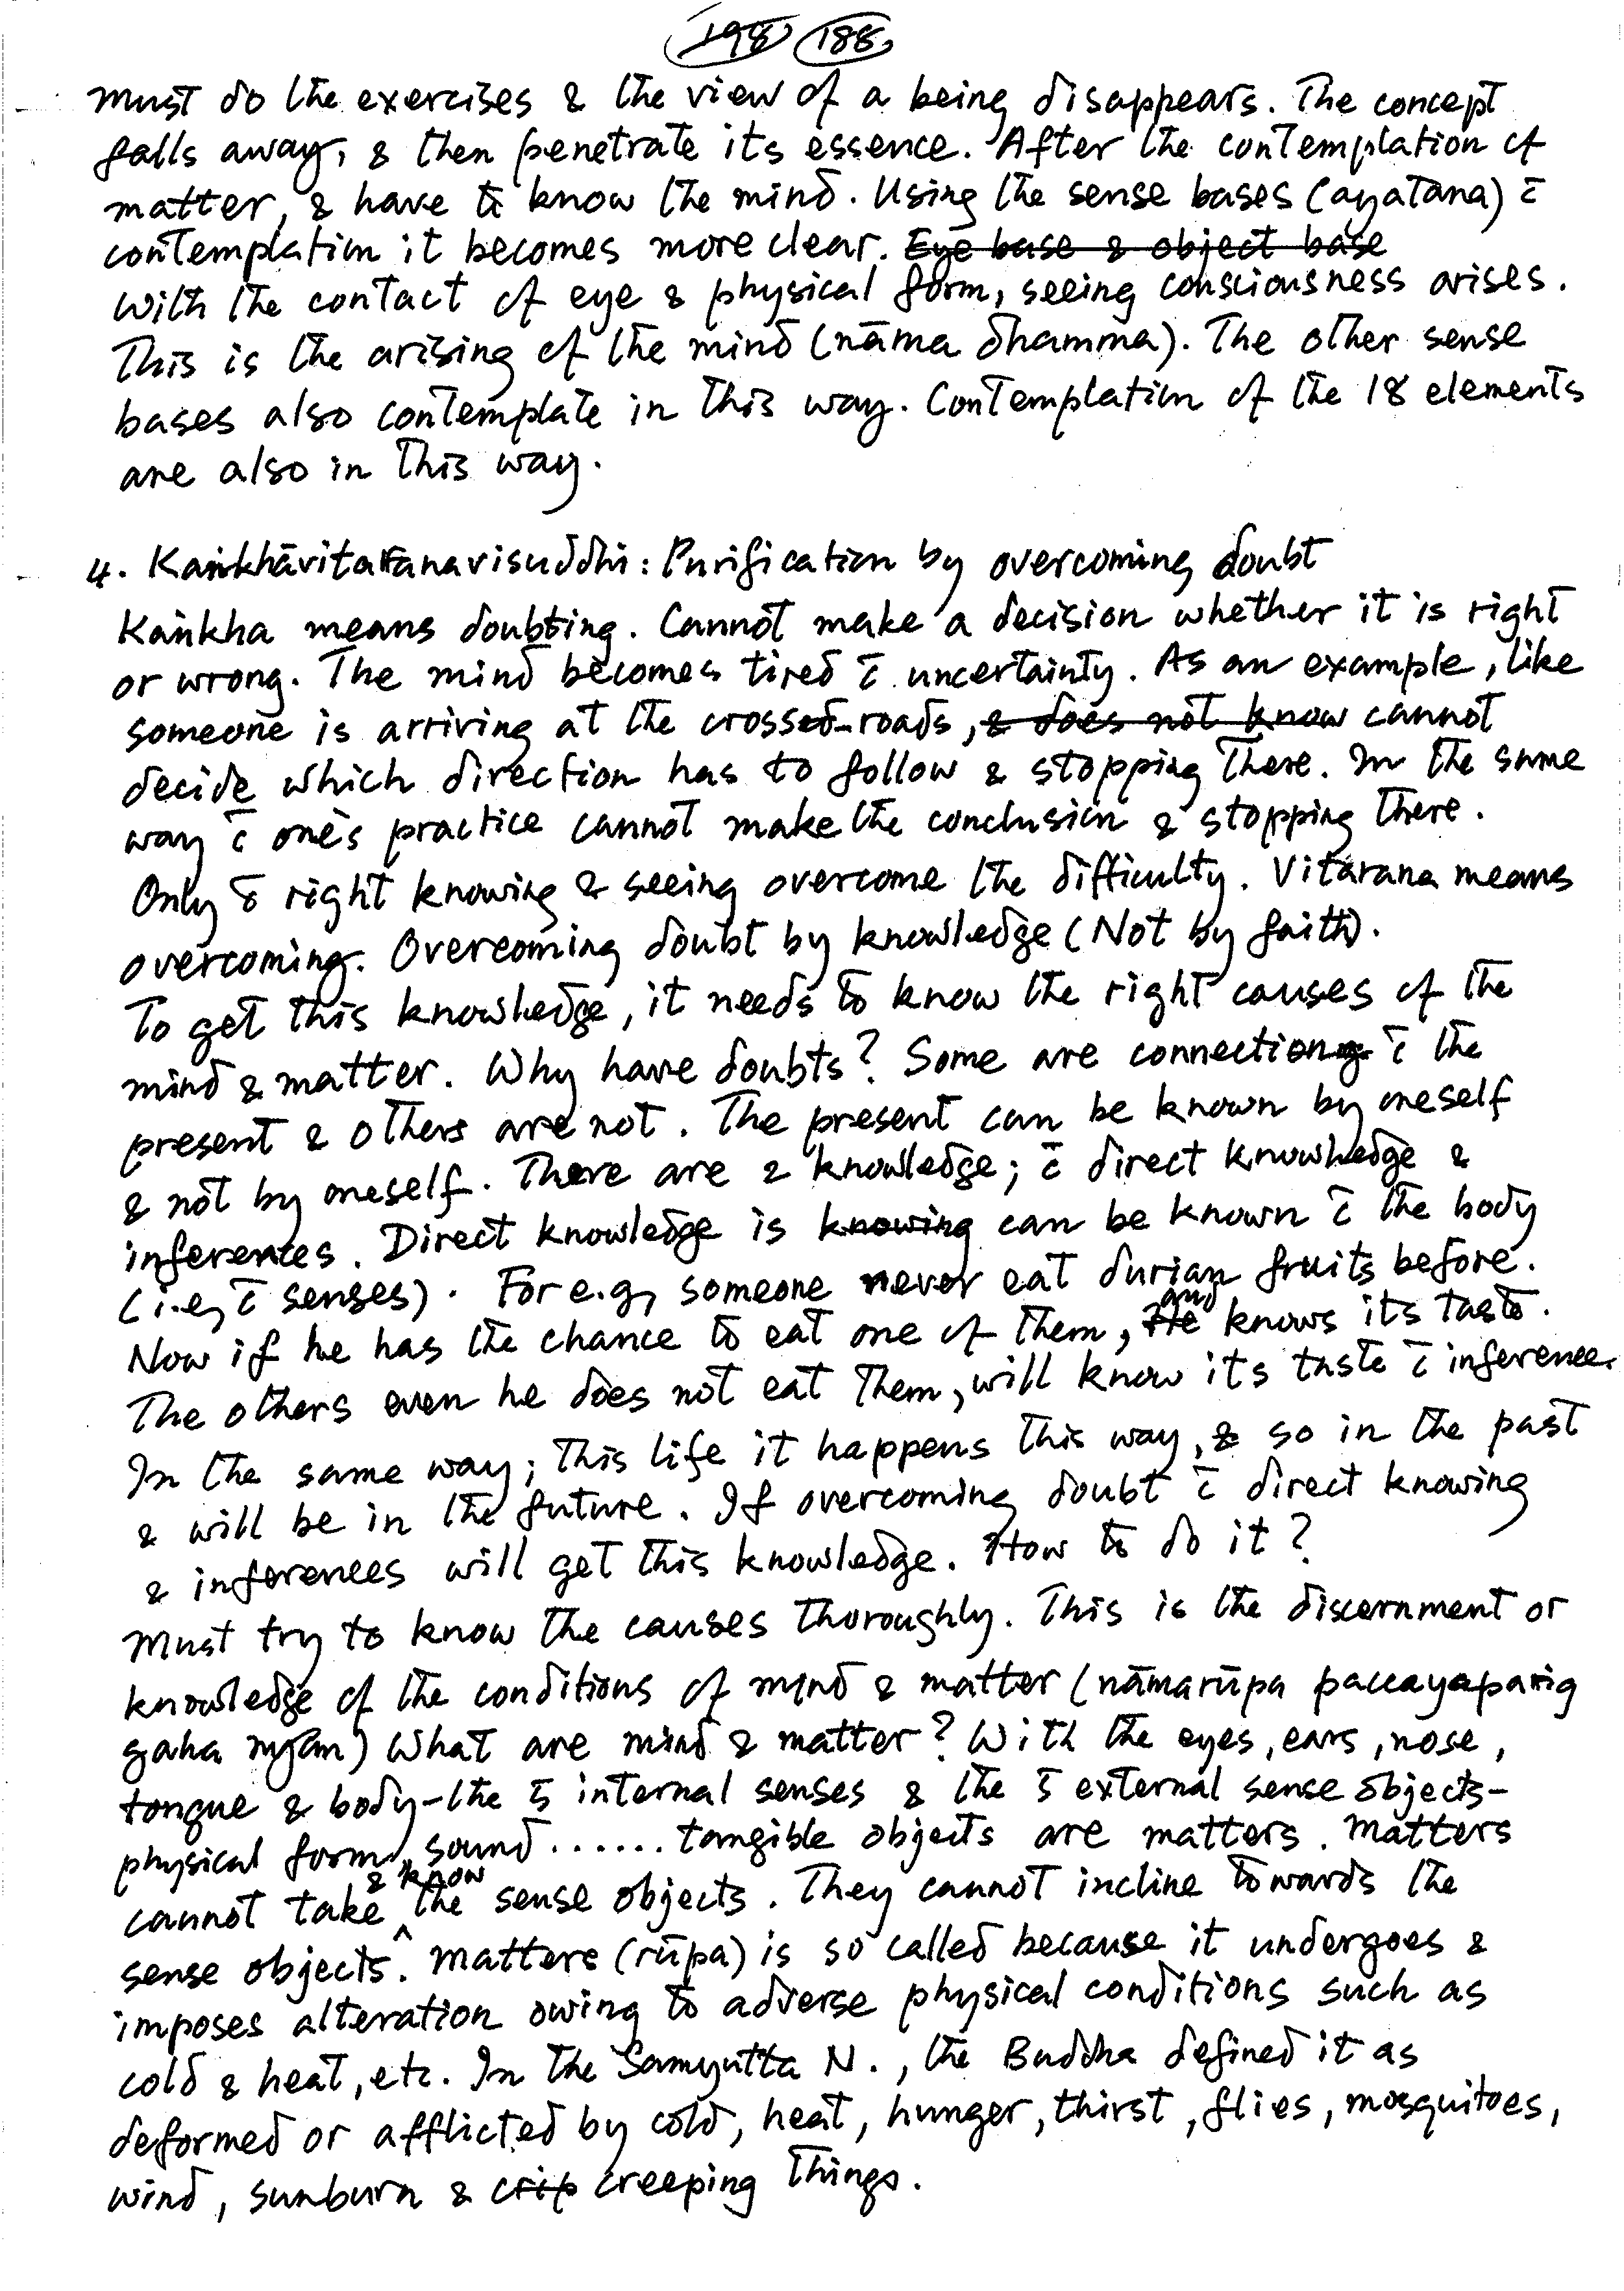 198 188
must do the exercises & the view of a being disappears. The concept
falls away, & then penetrate its essence. After the contemplation of
matter, & have to know the mind. Using the sense bases (ayatana) c̄
contemplation it becomes more clear. Eye base & object base
With the contact of eye & physical form, seeing consciousness arises.
This is the arising of the mind (nāma dhamma). The other sense
bases also contemplate in this way. Contemplation of the 18 elements
are also in this way.
4. Kaṅkhāvitaraṇavisuddhi: Purification by overcoming doubt
Kaṅkha means doubting. Cannot make a decision whether it is right
or wrong. The mind becomes tired c̄ uncertainty. As an example, like
someone is arriving at the crossed-roads, & does not know cannot
decide which direction has to follow & stopping there. In the same
way c̄ one's practice cannot make the conclusion & stopping there.
Only c̄ right knowing & seeing overcome the difficulty. Vitarana means
overcoming. Overcoming doubt by knowledge (Not by faith).
To get this knowledge, it needs to know the right causes of the
mind & matter. Why have doubts? Some are connection c̄ the
present & others are not. The present can be known by oneself
& not by oneself. There are 2 knowledge; c̄ direct knowledge &
inferences. Direct knowledge is knowing can be known c̄ the body
(i.e, c̄ senses). For e.g, someone never eat durian fruits before.
Now if he has the chance to eat one of them, He and knows its taste.
The others even he does not eat them, will know its taste c̄ inference.
In the same way; this life it happens this way, & so in the past
& will be in the future. If overcoming doubt c̄ direct knowing
& inferences will get this knowledge. How to do it?
Must try to know the causes thoroughly. This is the discernment or
knowledge of the conditions of mind & matter (nāmarūpa paccayaparig
gaha ñan) What are mind & matter? With the eyes, ears, nose,
tongue & body-the 5 internal senses & the 5 external sense objects-
physical form, sound ...... tangible objects are matters. Matters
cannot take & know the sense objects. They cannot incline towards the
sense objects. Matters (rūpa) is so called because it undergoes &
imposes alteration owing to adverse physical conditions such as
cold & heat, etc. In the Samyutta N., the Buddha defined it as
deformed or afflicted by cold, heat, hunger, thirst, flies, mosquitoes,
wind, sunburn & crip creeping things.